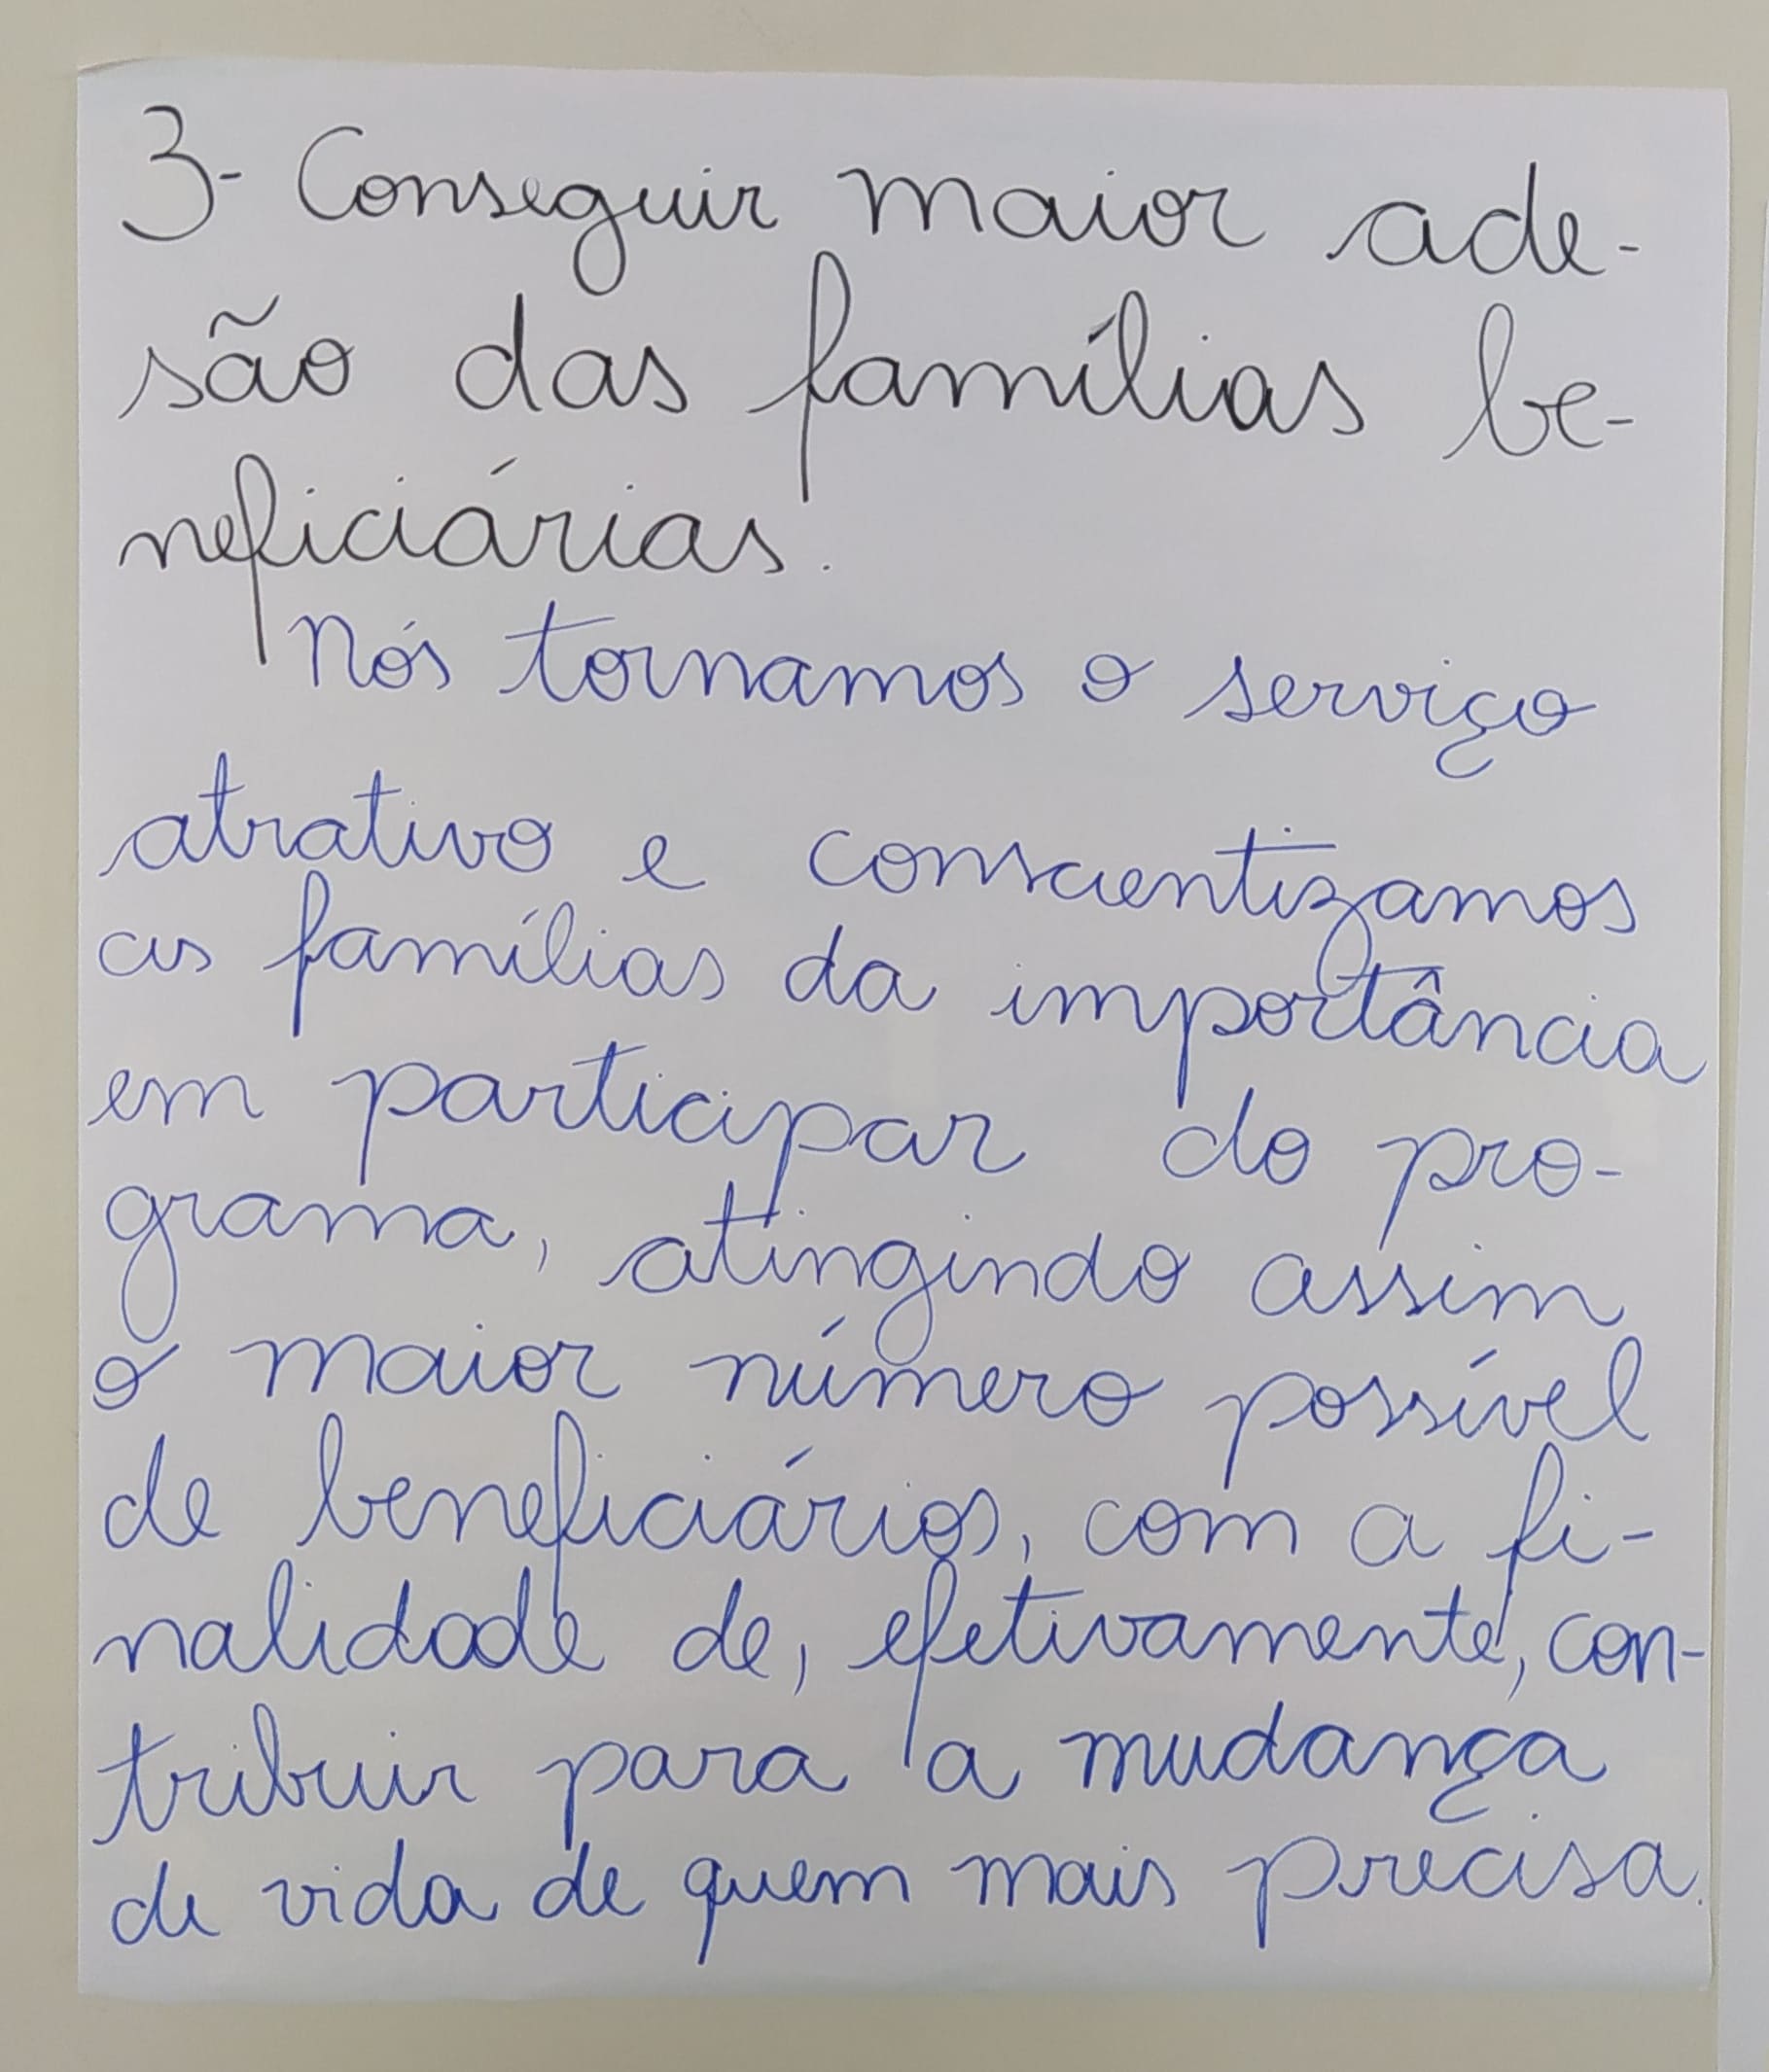 3- Conseguir maior ade-
são das famílias be-
neficiárias.
Nós tornamos o serviço
atrativo e conscientizamos
as famílias da importância
em participar do pro-
grama, atingindo assim
o maior número possível
de beneficiários, com a fi-
nalidade de, efetivamente, con-
tribuir para a mudança
de vida de quem mais precisa.